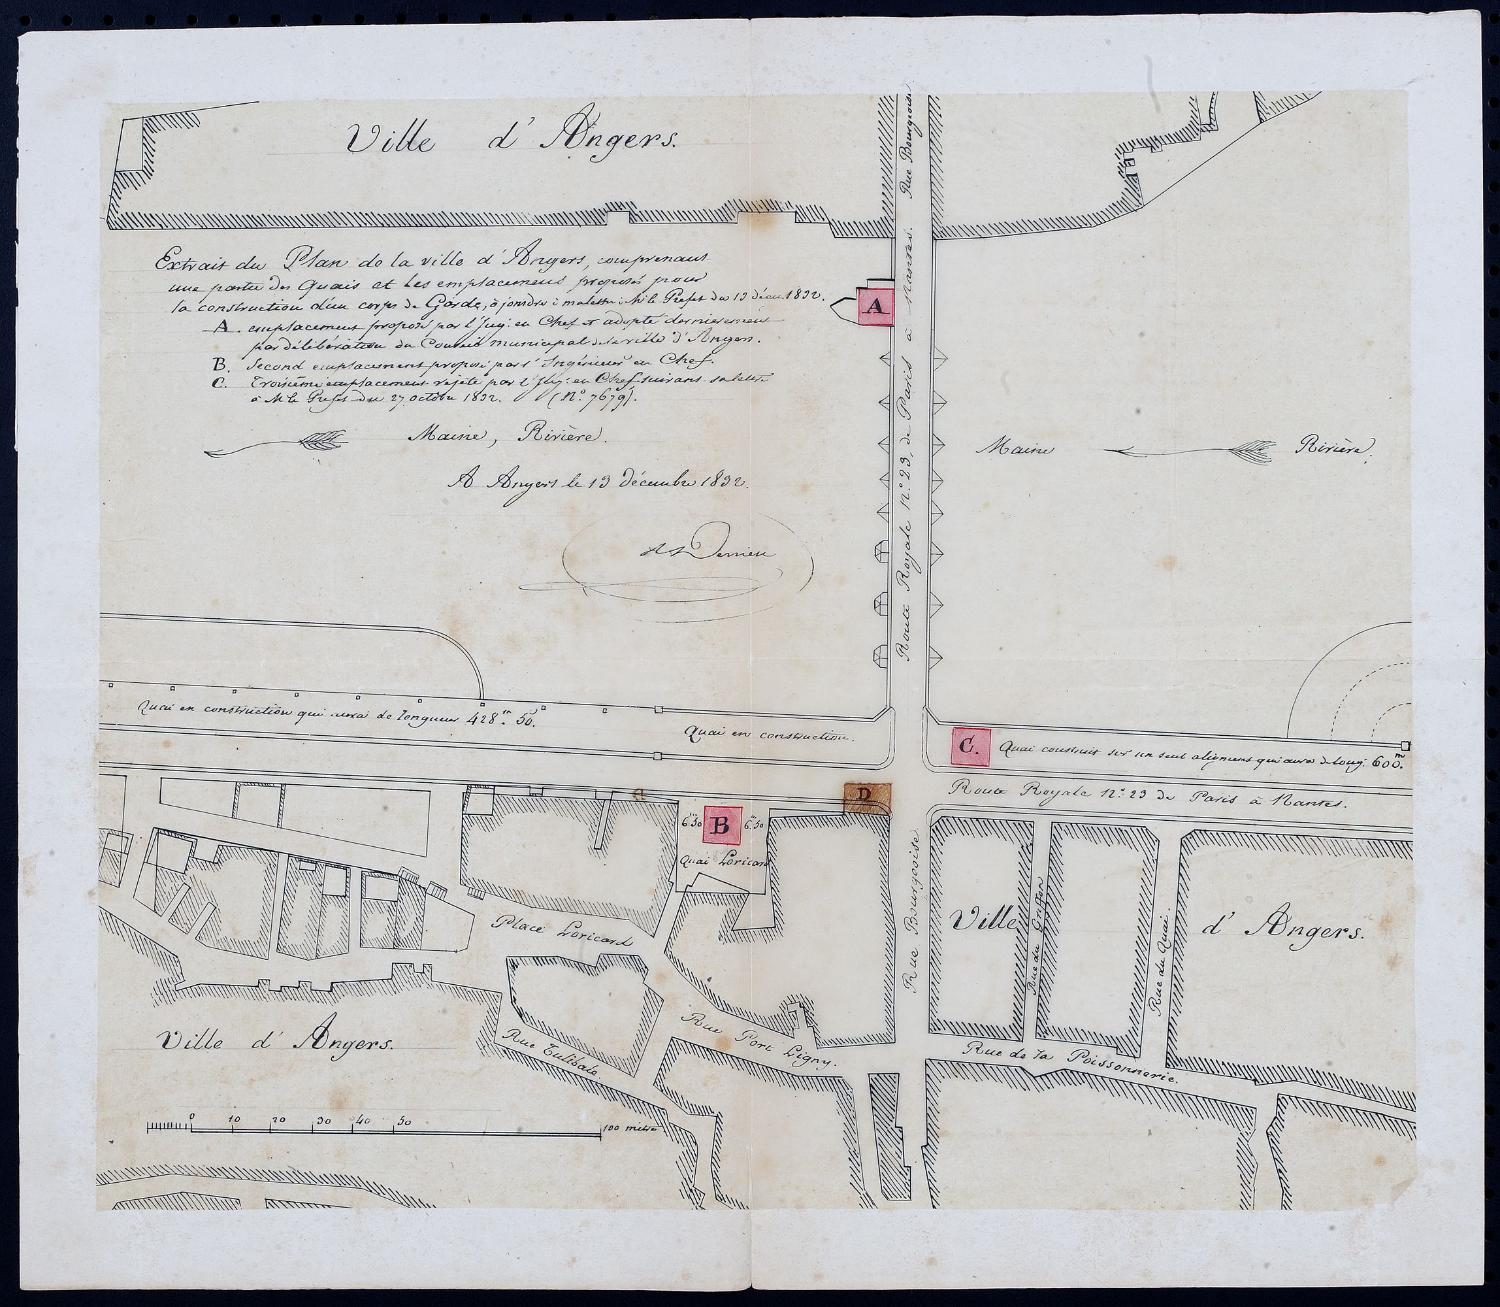 Ville d'Angers.
Rue Bourgeoise
Extrait du Plan de la ville d'Angers, comprenant
une partie des Quais et les emplacemens proposés pour
la construction d'un corps de Garde, à joindre à ma lettre à M. le Préfet du 13 décem. 1832.
A. emplacement proposé par l'Ing. en Chef et adopté dernierement
par délibération du Conseil municipal de la ville d'Angers.
B. Second emplacement proposé par l'Ingénieur en Chef.
C. Troisième emplacement rejeté par l'Ing. en Chef suivant sa lettre
à M. le Préfet du 27 octobre 1832. (N.° 7679).
A
Route Royale N.° 23, de Paris à Nantes.
Maine, Rivière.
Maine Rivière.
A Angers le 13 décembre 1832.
Derrien
Quai en construction qui aura de longueur 428.m 50.
Quai en construction.
C.
Quai construit sur un seul alignement qui aura de long. 600.m
Route Royale N.° 23 de Paris à Nantes.
D
6.m50
B
6.m50
Quai Loricard
Place Loricard
Rue Bourgeoise
Ville d'Angers.
Rue du Griffon
Rue du Quai.
Rue Port Ligny.
Rue Tulibale
Rue de la Poissonnerie.
Ville d'Angers.
0 10 20 30 40 50 100 mètres